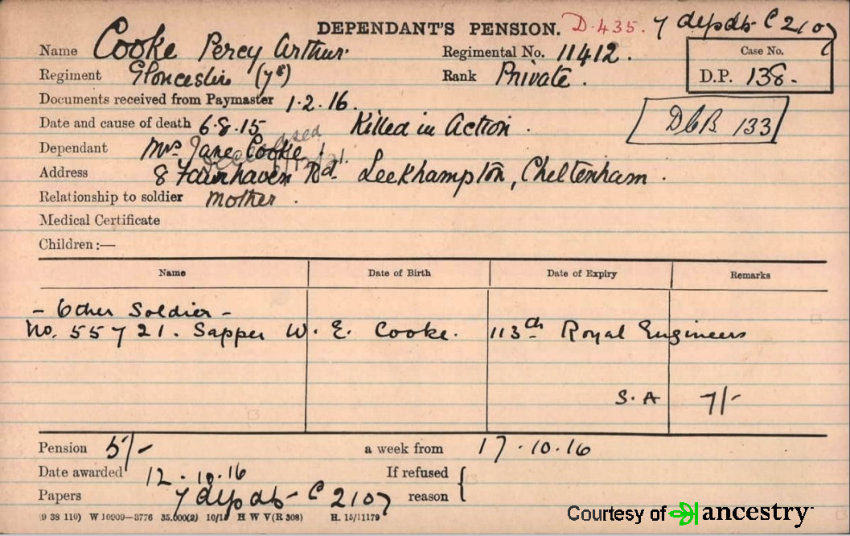 DEPENDANT'S PENSION. D.435. 7 depdb C 2107
Name Cooke Percy Arthur. Regimental No. 11412. Case No.
Regiment Gloucester (7th) Rank Private. D.P. 138.
Documents received from Paymaster 1.2.16.
Date and cause of death 6.8.15 Killed in Action. DCB 133
Dependant Mrs Jane Cooke deceased
Address 8 Fairhaven Rd. Leckhampton, Cheltenham.
Relationship to soldier Mother.
Medical Certificate
Children:—
Name Date of Birth Date of Expiry Remarks
- Other Soldier -
No. 55721. Sapper W. E. Cooke. 113th Royal Engineers
S.A 7/-
Pension 5/- a week from 17.10.16
Date awarded 12.10.16 If refused
Papers 7 depdb C 2107 reason
(9 38 110) W 10909—3776 35,000(2) 10/15 H W V(R 308) H. 15/11179
Courtesy of ancestry